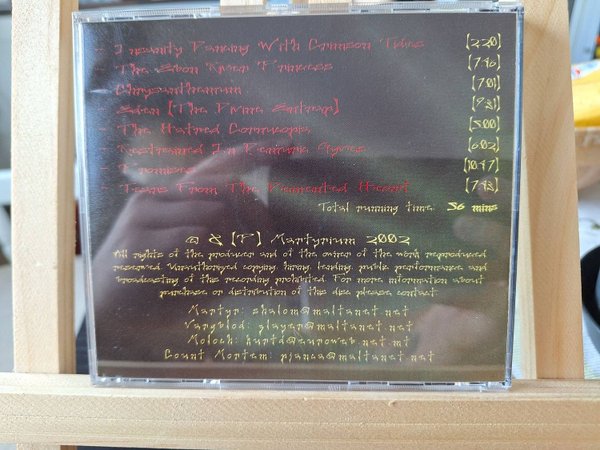 - Dancing With Crimson Tides [2.20]
- The Ebon Raven Princess [7.46]
- Chrysanthemum [7.01]
- Eden [The Divine] [9.31]
- The Hatred Cornucopia [5.00]
- Restrained In Feminine Gyves [6.02]
- [10.47]
- Tears From The Demented Heart [7.43]
Total running time 56 mins
© & [P] Martyrium 2002
All rights of the producer and of the owner of the work reproduced
reserved. Unauthorised copying, hiring, lending, public performance and
broadcasting of this recording prohibited. For more information about
purchase or distribution of this disc please contact
Martyr: shalom@maltanet.net
Vargblod: slayer@maltanet.net
Moloch: hurtd@europweb.net.mt
Count Mortem: pjanca@maltanet.net